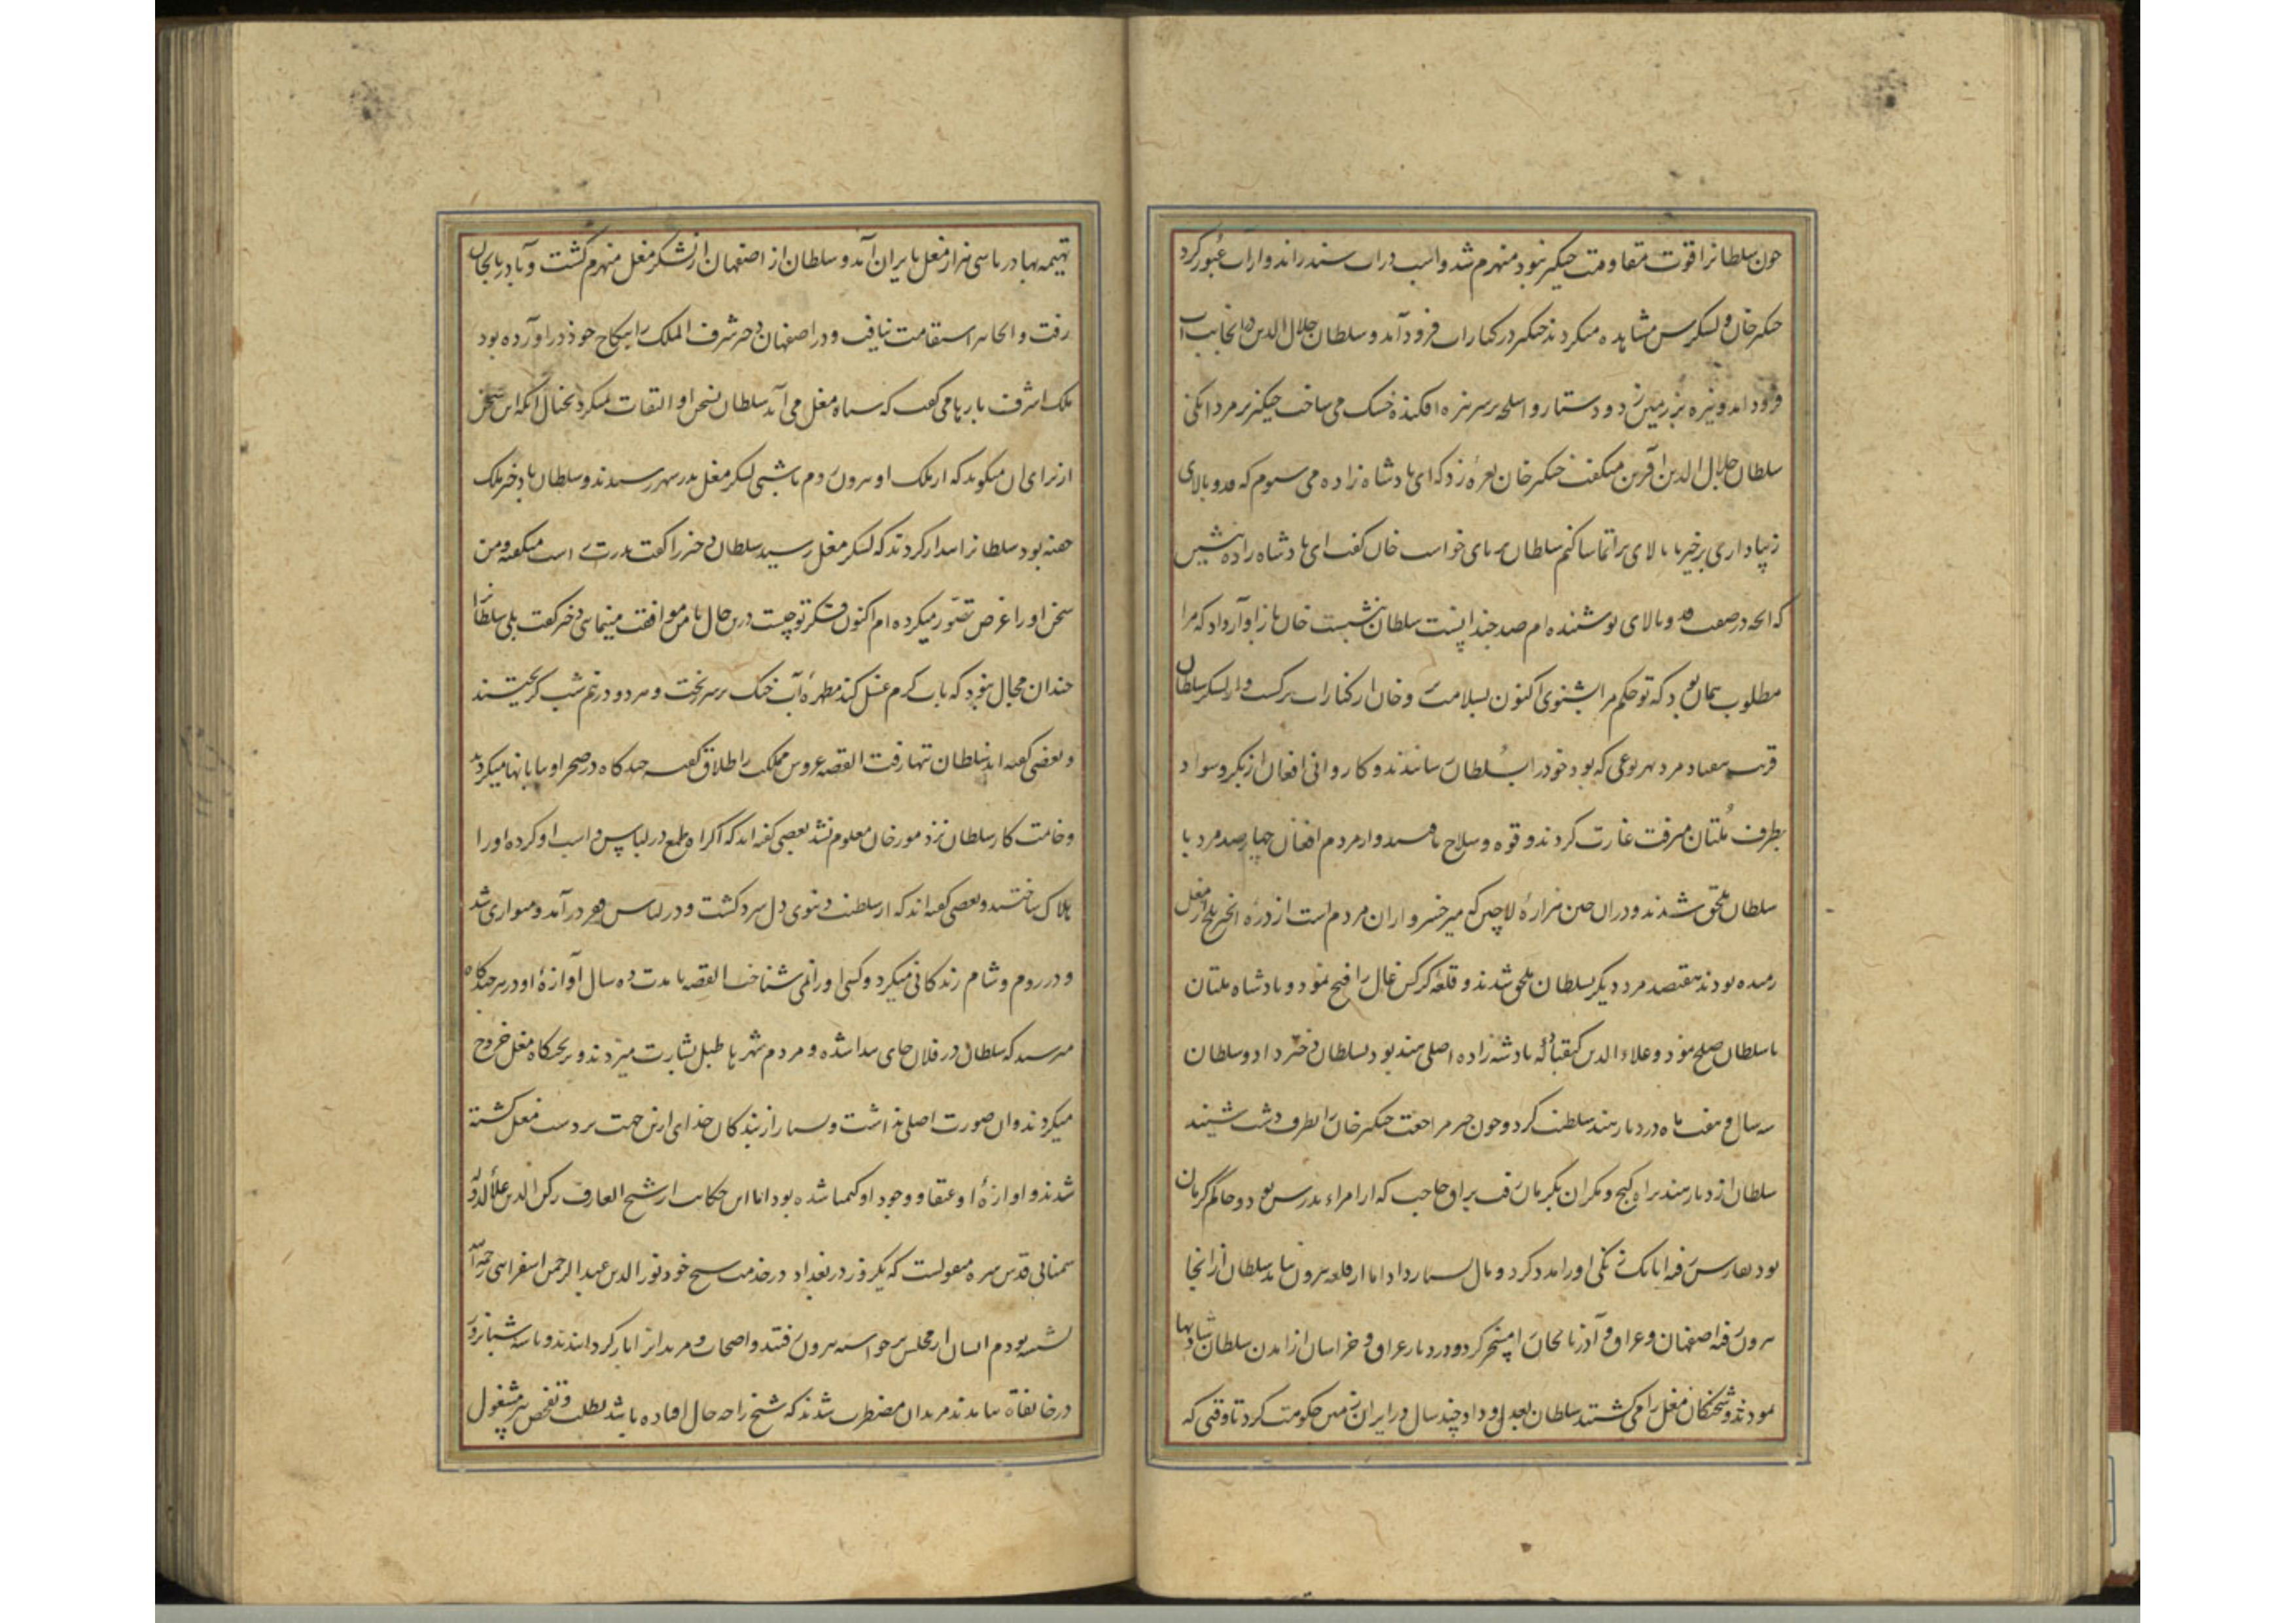 چون سلطانرا قوت مقاومت چنگیز نبود منهزم شد و اسب در آب سند راند و از آب عبور کرد
چنگیز خان و لشکرش مشاهده میکردند چنگیز در کنار آب فرود آمد و سلطان جلال الدین از آنجانب آب
فرود آمد و نیزه بر زمین زد و دستار و اسلحه بر سر نیزه افکنده خشک می ساخت چنگیز بر مردانگی
سلطان جلال الدین آفرین میگفت چنگیز خان نعره زد که ای پادشاه زاده می شنوم که قد و بالای
زیبا داری برخیز تا بالای ترا تماشا کنم سلطان بر پای خواست خان گفت ای پادشاه زاده بنشین
که انچه در صفت قد و بالای تو شنیده ام صد چندانست سلطان بنشست خان باز آواز داد که مرا
مطلوب همان بود که تو حکم مرا بشنوی اکنون بسلامت رو خان از کنار آب برگشت و از لشکر سلطان
قریب هفتاد مرد بهر نوعی که بود خود را بسلطان رسانیدند و کاروانی افغان از بکر و سواد
بطرف ملتان میرفت غارت کردند و قوه و سلاح یافتند و از مردم افغان چهارصد مرد با
سلطان ملحق شدند و در آن حین هزاره لاچین که میر خسرو از آن مردم است از دره انجیر بلخ از مغل
رمیده بودند هفتصد مرد دیگر بسلطان ملحق شدند و قلعه کرکس غال را فتح نمود و پادشاه ملتان
با سلطان صلح نمود و علاء الدین کیقباد که پادشه زاده اصلی هند بود بسلطان دختر داد و سلطان
سه سال و هفت ماه در دیار هند سلطنت کرد و چون خبر مراجعت چنگیز خان را بطرف دشت شنید
سلطان از دیار هند براه کیج و مکران بکرمان رفت براق حاجب که از امراء پدرش بود و حاکم کرمان
بود بفارس رفته اتابک زنگی او را مدد کرد و مال بسیار داد اما از قلعه بیرون نیامد سلطان از آنجا
بیرون رفته اصفهان و عراق و آذربایجان را مسخر کرد و در دیار عراق و خراسان از آمدن سلطان شادیها
نمودند و شحنگان مغل را می کشتند سلطان بعدل و داد چند سال در ایران زمین حکومت کرد تا وقتی که
بهادر با سی هزار مغل بایران آمد و سلطان از اصفهان از لشکر مغل منهزم گشت و بآذربایجان
رفت و آنجا نیز استقامت نیافت و در اصفهان دختر شرف الملک را بنکاح خود در آورده بود
ملک اشرف بارها می گفت که سپاه مغل می آید سلطان بسخن او التفات نمیکرد بخیال آنکه این سخن
از برای آن میگوید که از ملک او بیرون روم تا شبی لشکر مغل بدر شهر رسیدند و سلطان با دختر ملک
خفته بود سلطانرا بیدار کردند که لشکر مغل رسید سلطان دختر را گفت پدرت راست میگفته و من
سخن او را غرض تصور میکرده ام اکنون فکر تو چیست درین حال با من موافقت مینمایی دختر گفت بلی سلطانرا
چندان مجال نبود که بآب گرم غسل کند مطهره آب خنک بر سر ریخت و هر دو در نیم شب گریختند
و بعضی گفته اند سلطان تنها رفت القصه عروس مملکت را طلاق گفته چندگاه در صحرا و بیابانها میکردید
و خاتمت کار سلطان نزد مورخان معلوم نشد بعضی گفته اند که اکراد طمع در لباس و اسب او کرده او را
هلاک ساختند و بعضی گفته اند که از سلطنت دنیوی دل سرد گشت و در لباس فقر در آمد و متواری شد
و در روم و شام زندگانی میکرد و کسی او را نمی شناخت القصه تا مدت ده سال آوازه او در هر چندگاه
میرسید که سلطان در فلان جای پیدا شده و مردم شهرها طبل بشارت میزدند و بر شحنگان مغل خروج
میکردند و آن صورت اصلی نداشت و بسیار از بندگان خدای ازین جهت بر دست مغل کشته
شدند و آوازه او عنقا و وجود او کیمیا شده بود اما این حکایت از شیخ العارف رکن الدین علاء الدوله
سمنانی قدس سره منقولست که یکروز در بغداد در خدمت شیخ خود نور الدین عبد الرحمن اسفراینی رحمه الله
نشسته بودم ایشان از مجلس برخواسته بیرون رفتند و اصحاب و مریدانرا باز گردانیدند و تا سه شبانروز
در خانقاه نیامدند مریدان مضطرب شدند که شیخ را چه حال افتاده باشد بطلب و تفحص مشغول